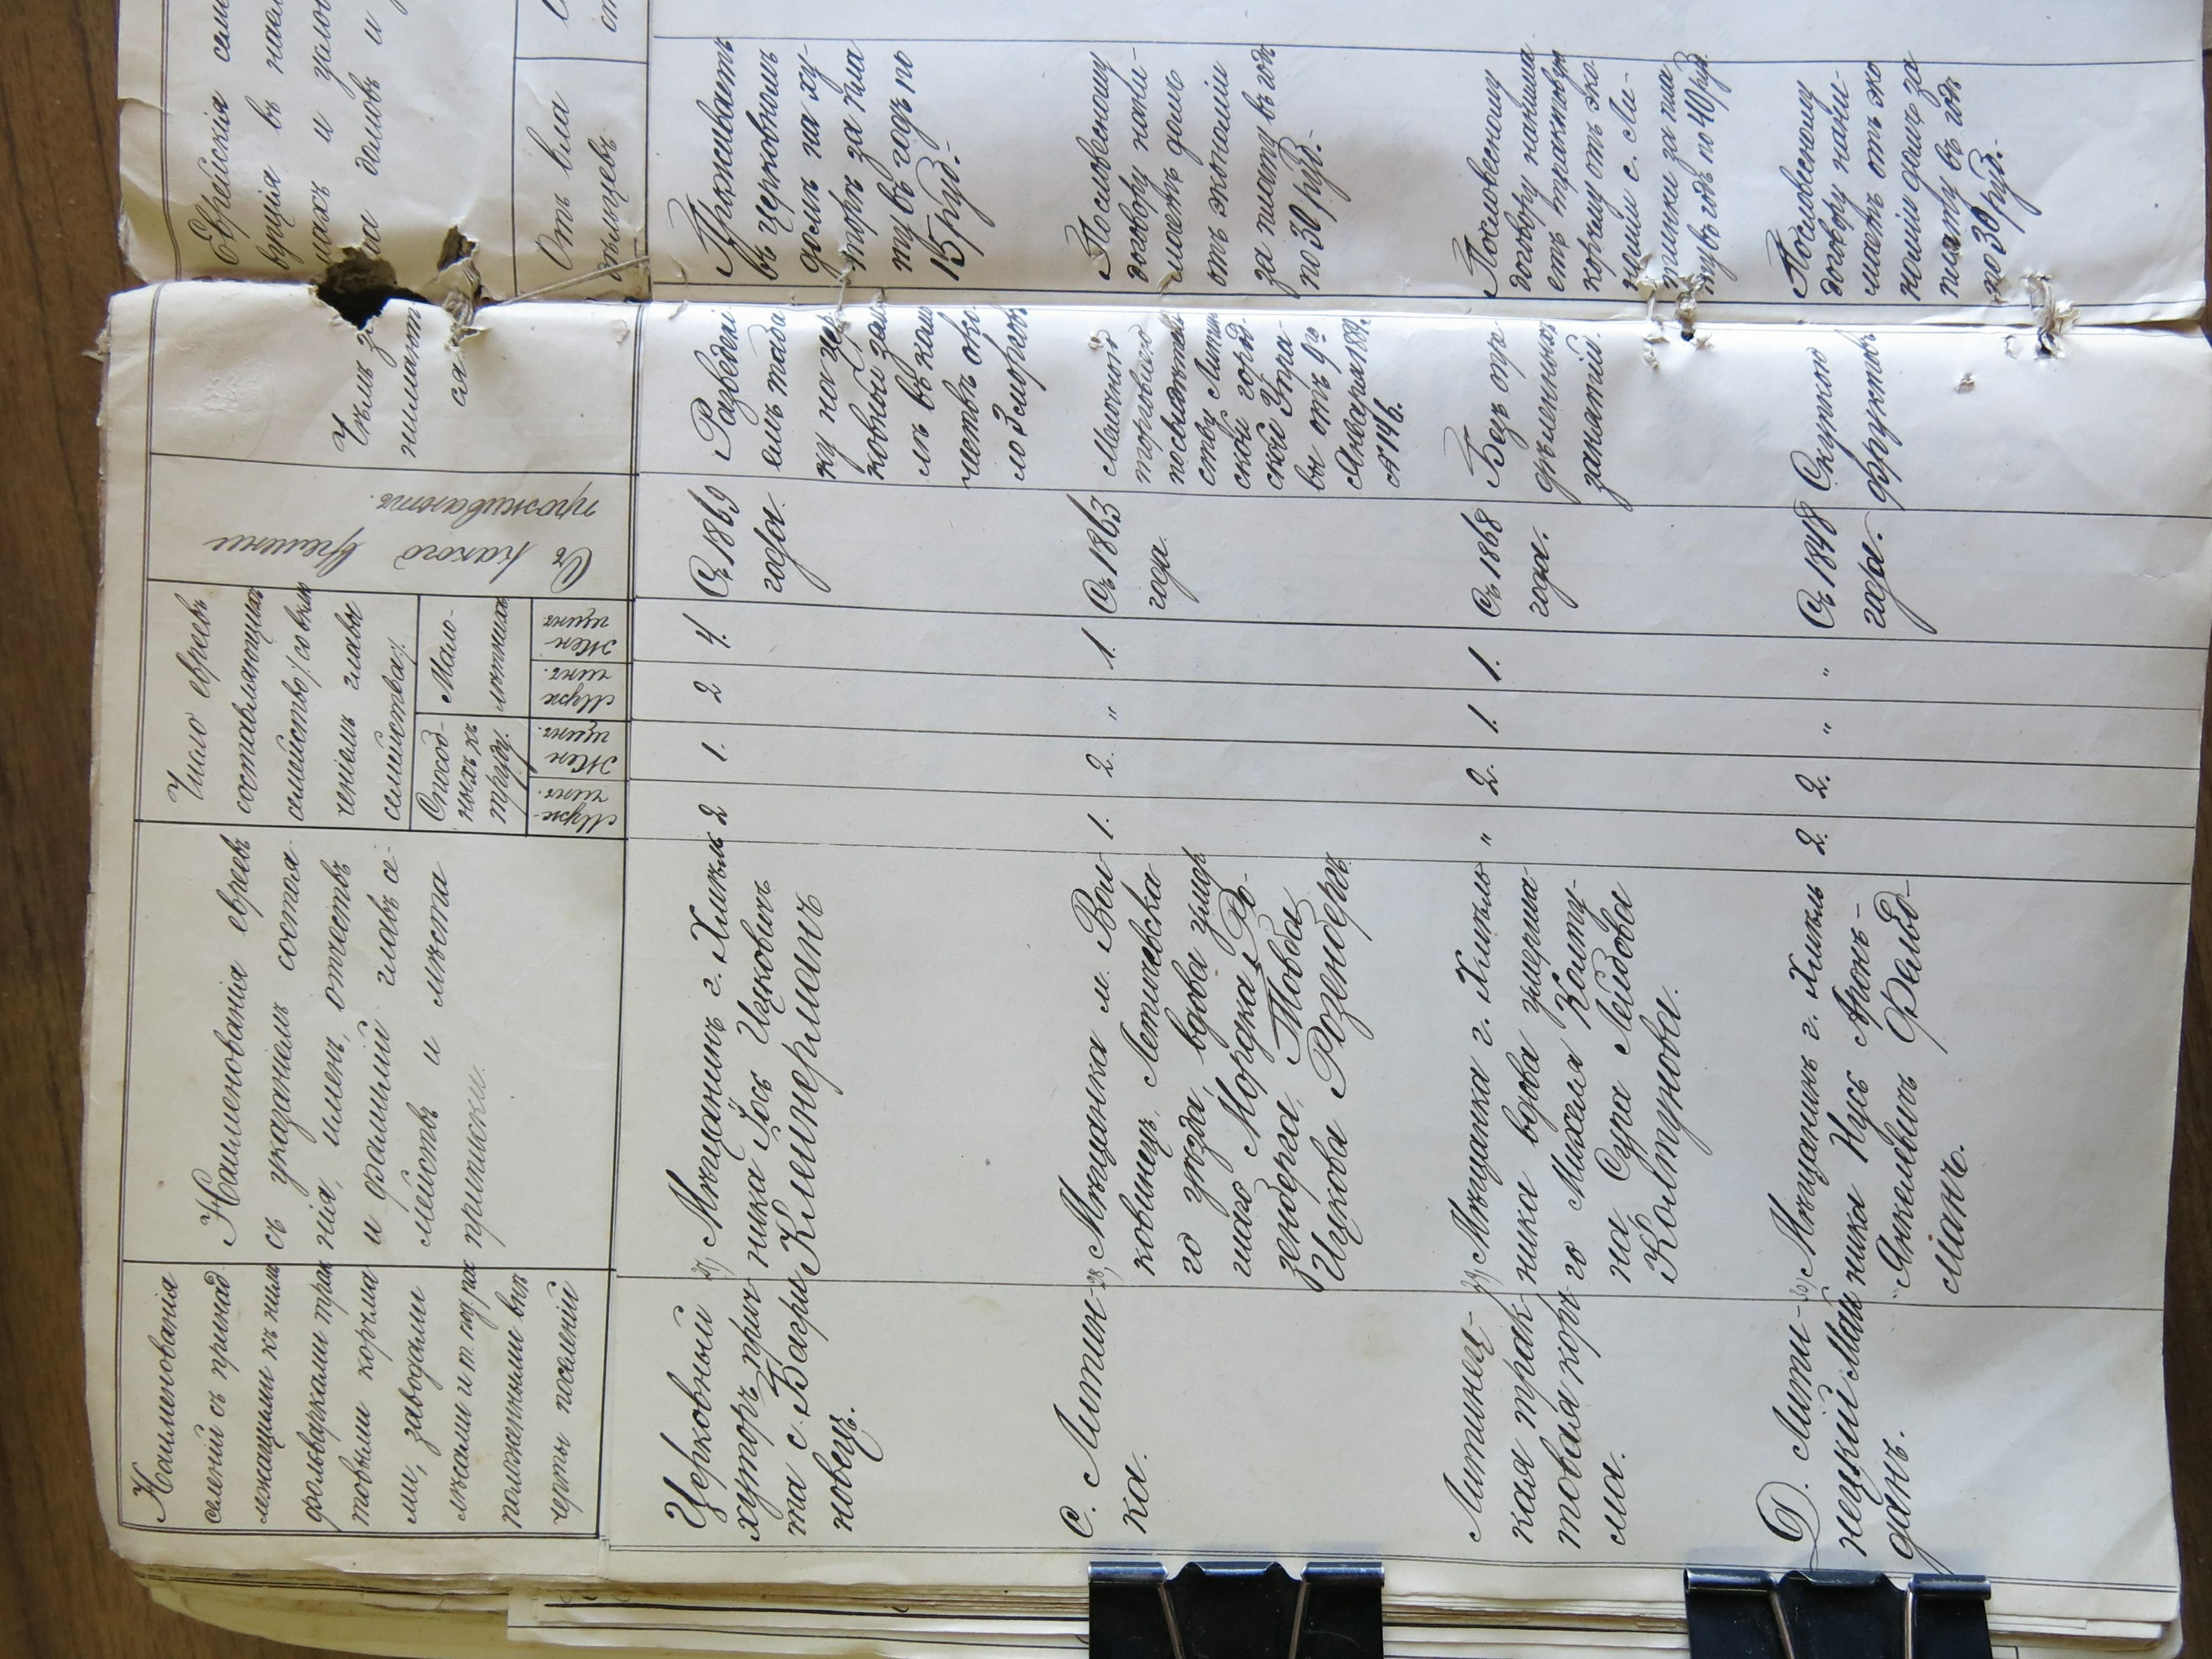 Наименованія
селеній съ принад
лежащими къ нимъ
фольварками трак
товыми корчма
ми, заводами
лѣсами и т. под. рас
положенными внѣ
черты поселеній
Наименованія евреевъ
съ указаніемъ состоя-
нія, именъ, отчествъ
и фамилій главъ се-
мействъ и мѣста
приписки.
Число евреевъ
составляющихъ
семейство /со вклю
ченіемъ главы
семейства/.
Способ-
ныхъ къ
труду.
Мало-
лѣтнихъ
Муж-
чинъ.
Жен
щинъ.
Муж
чинъ.
Жен-
щинъ
Съ какого времени
проживаютъ.
Чѣмъ за
нимают
ся
Еврейскія
въ
и
домовъ и
Отъ вла
дѣльцевъ
Церковный
хуторъ прич-
та с. Багри
новецъ.
27) Мѣщанинъ г. Хмѣль
ника Іось Ицковичъ
Клейнерманъ
2
1.
2
4.
Съ 1869
года.
Разведені
емъ таба
ку на цер
ковный зем
лѣ въ коли
чествѣ око
ло 3 морговъ
Проживаетъ
въ церковномъ
домѣ на ху-
торѣ за пла
ту въ годъ по
15 руб.-
С. Литин-
ка.
28) Мѣщанка м. Вол
ковинецъ, Летичевска
го уѣзда, вдова умер
шаго Мордка Ро-
зенберга, Товба
Ицкова Розенбергъ
1.
2.
"
1.
Съ 1863
года.
Мелочною
торговлею
по свидѣтель
ству Литин
ской город
ской Упра-
вы отъ 9го
Января 188
№ 146.
По словесному
договору нани-
маетъ домъ
отъ экономіи
за плату въ годъ
по 30 руб.-
Литинец-
кая трак-
товая корч-
ма.
29) Мѣщанка г. Хмѣль
ника вдова умерша-
го Михеля Колту-
на Сура Лейбова
Колтунова.
"
2.
1.
1.
Съ 1868
года.
Безъ опре
дѣленныхъ
занятій.
По словесному
договору нанима
етъ трактовую
корчму отъ эко
номіи с. Ли-
тинки за пла
ту въ годъ по 40 руб.
Д. Лити-
нецкій Май
данъ.
30) Мѣщанинъ г. Хмѣль
ника Нусь Аронъ-
Янкелевичъ Фельд-
манъ.
2.
2.
"
"
Съ 1848
года.
Скупкою
фруктовъ
По словесному
договору нани-
маетъ отъ эко
номіи домъ за
плату въ годъ
по 30 руб.-